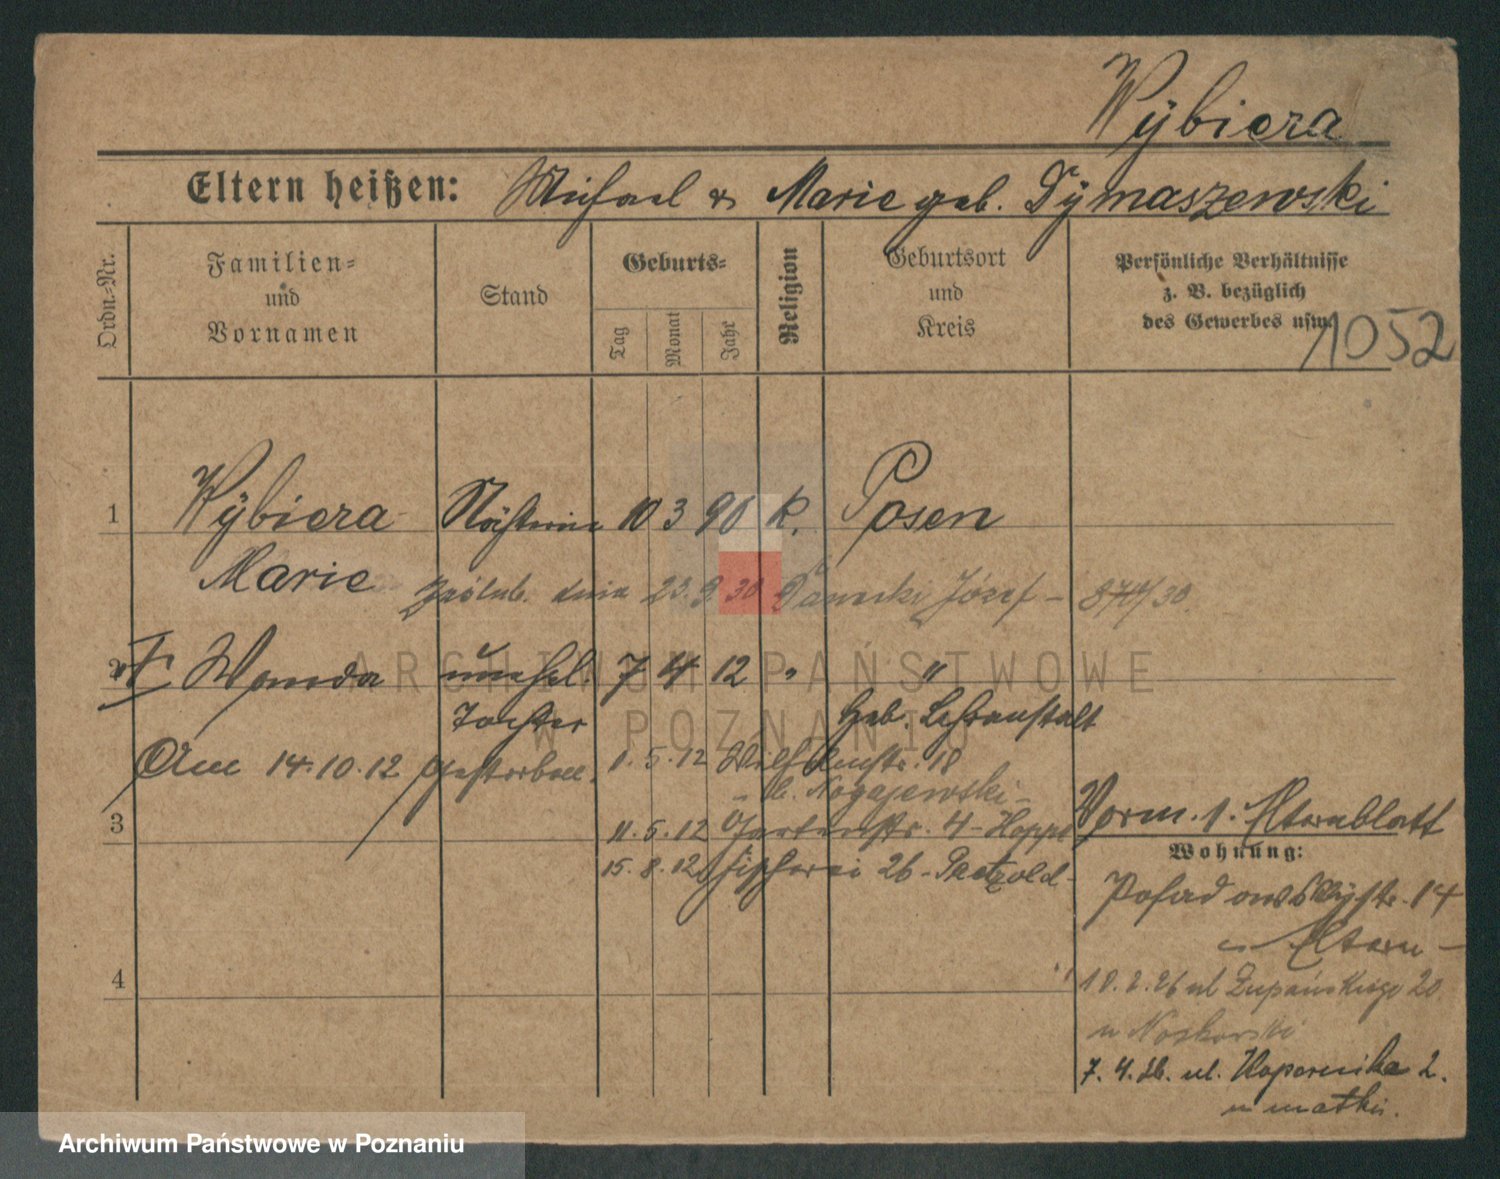 Wÿbiera
Eltern heißen: Michael & Marie geb. Dÿmaszewski
Ordn.-Nr.
Familien-
und
Vornamen
Stand
Geburts-
Tag
Monat
Jahr
Religion
Geburtsort
und
Kreis
Persönliche Verhältnisse
z. B. bezüglich
des Gewerbes usw.
1052
1 Wÿbiera Näherin 10 3 90 K. Posen
Marie
zaślub. dnia 23.9.30 Józef – 30
2 Wanda unehel. 7 4 12 " "
Tochter Heb. Lehranstalt
Am 14.10.12 gestorben.
1.5.12 18
b. Nogajewski –
3
11.5.12 Gartenstr. 4 – Hoppe
15.8.12 26 – Paetzold –
Vorm. 1. Elternblatt
Wohnung:
14
Eltern –
4
ul Łupańskiego 20
u Noskowski
7.4.26. ul. Kopernika 2.
u matki.
ARCHIWUM PAŃSTWOWE
W POZNANIU
Archiwum Państwowe w Poznaniu